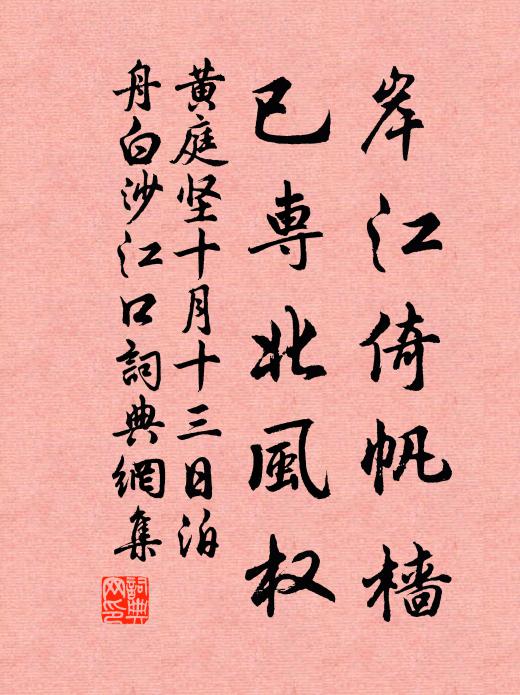 岸江倚帆檣
已專北風权
黃庭坚十月十三日泊
舟白沙江口詞典網集
詞典網印